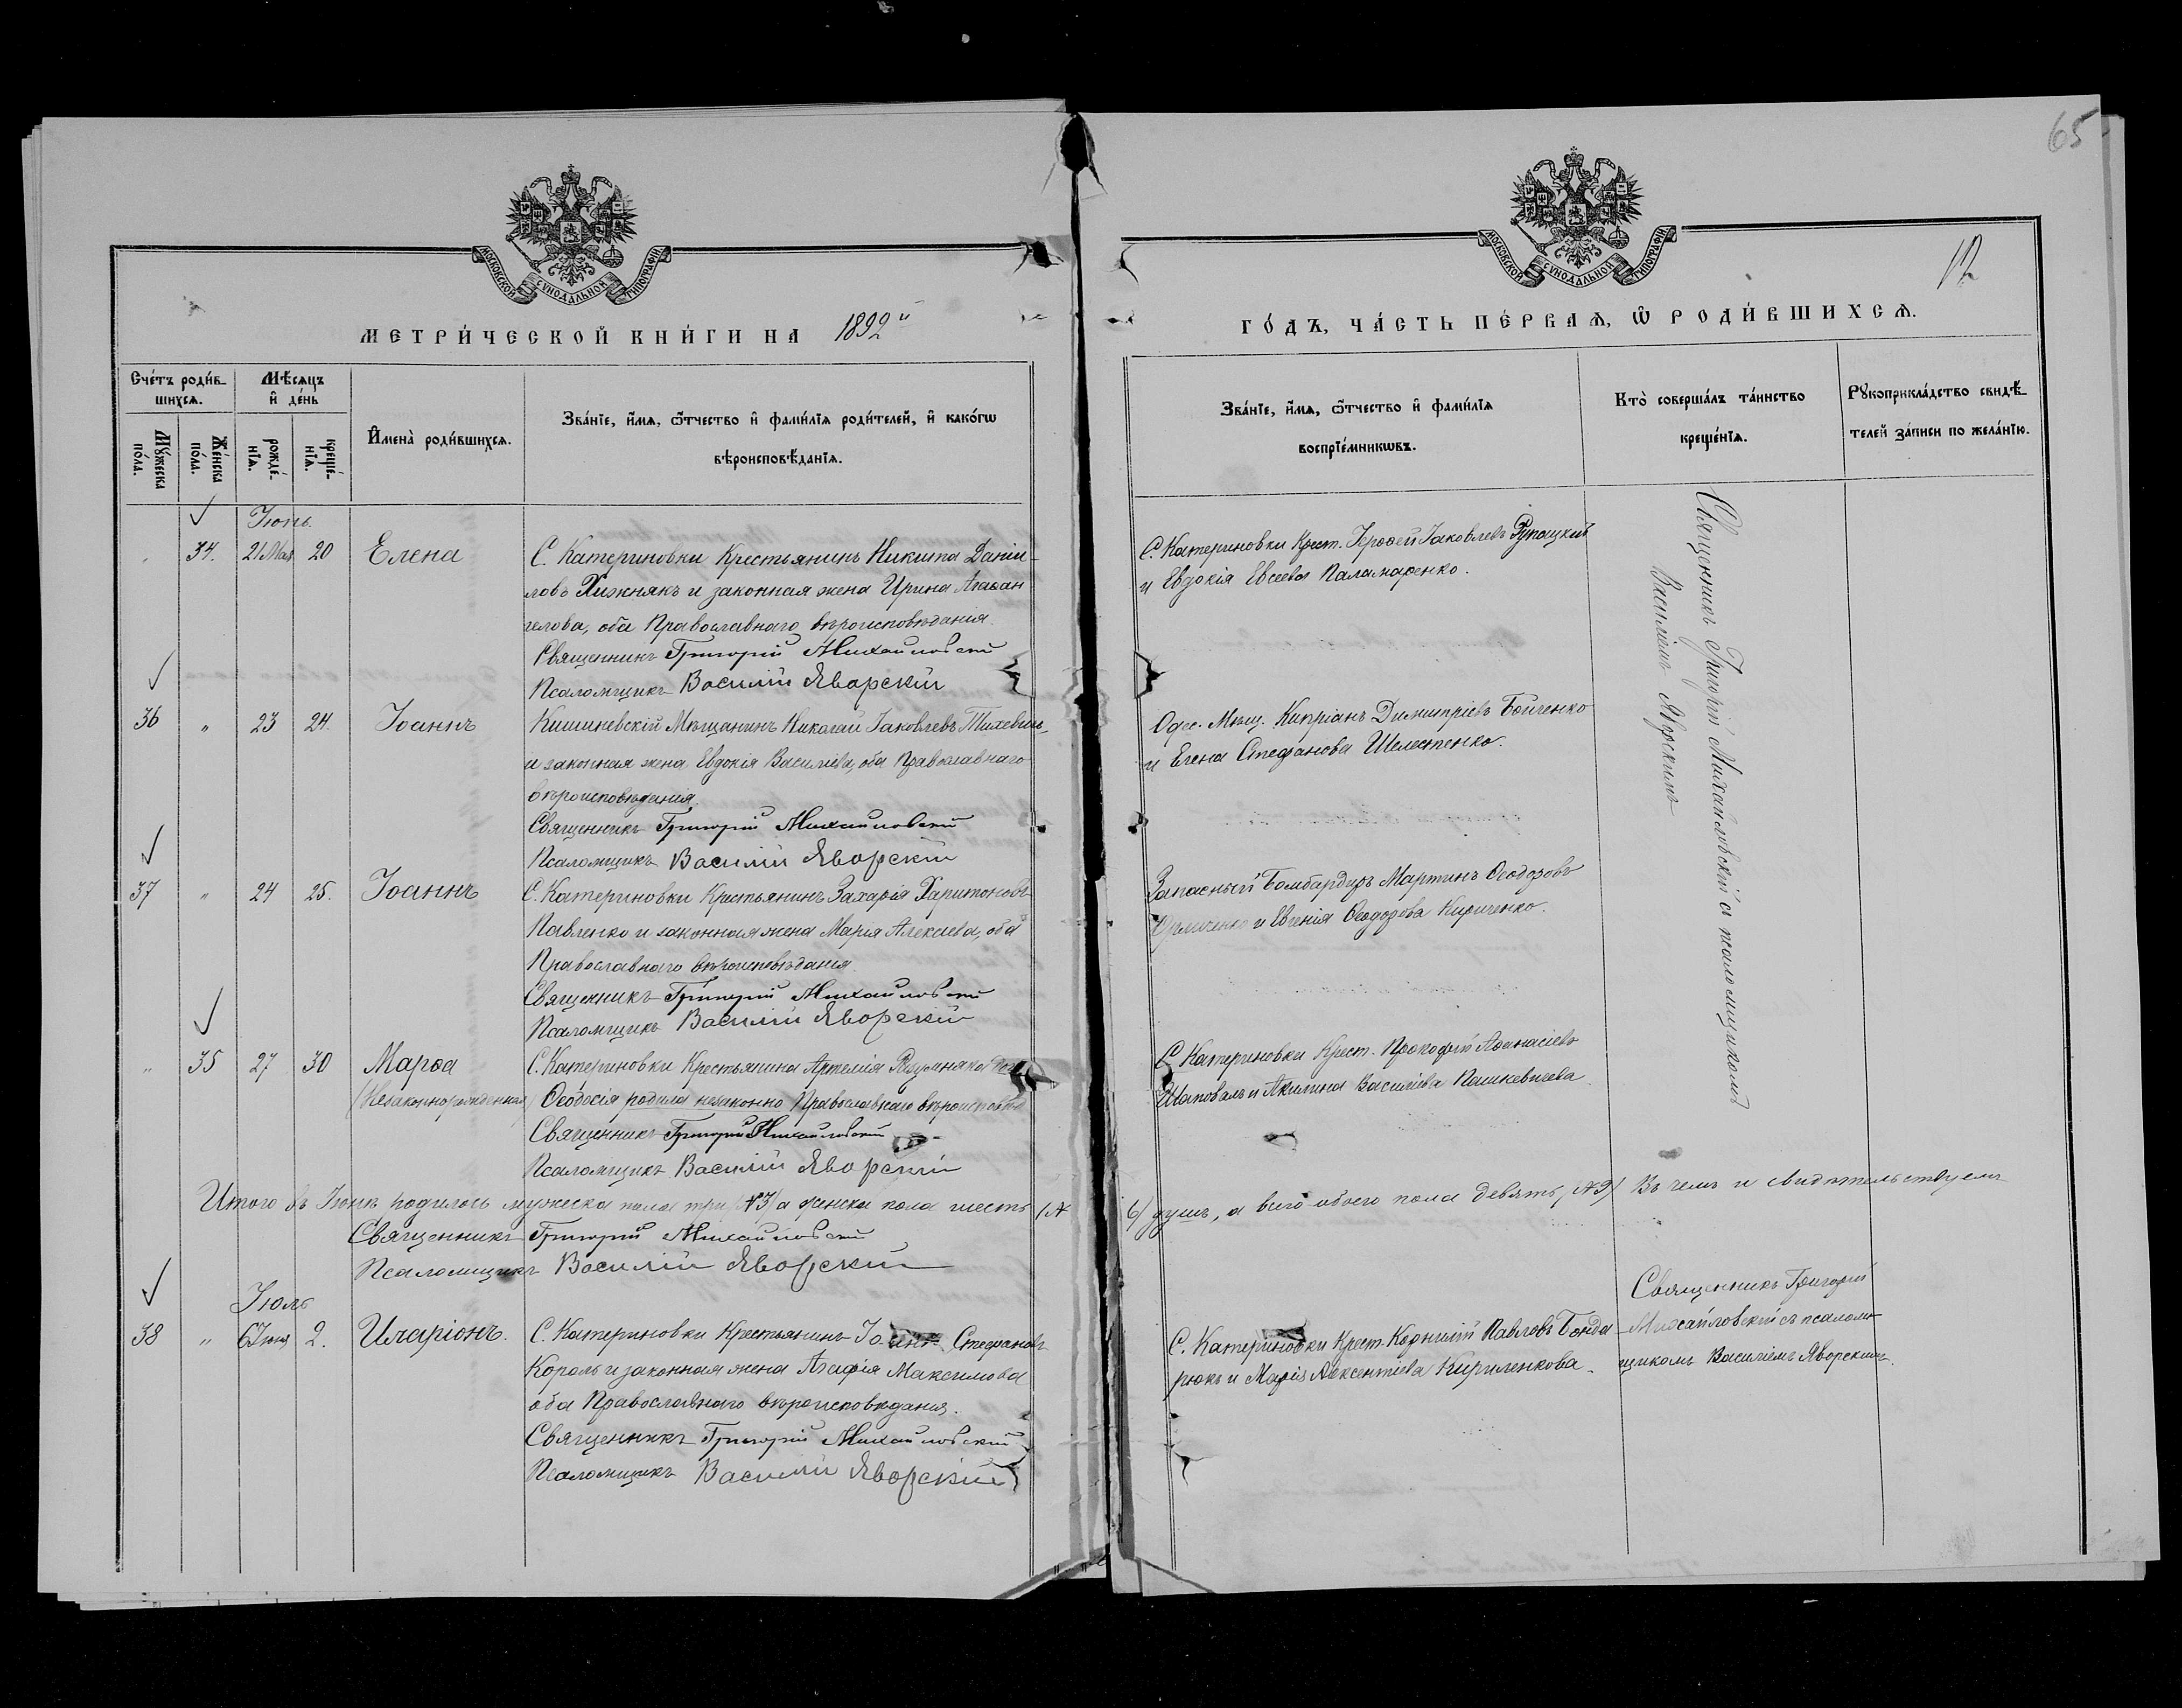 65
12
МОСКОВСКОЙ СУНОДАЛЬНОЙ ТИПОГРАФІИ
МОСКОВСКОЙ СУНОДАЛЬНОЙ ТИПОГРАФІИ
МЕТРИ́ЧЕСКОЙ КНИ́ГИ НА 1892й
ГО́ДЪ, ЧА́СТЬ ПЕ́РВАѦ, Ѡ РОДИ́ВШИХСѦ.
Сче́тъ роди́в-
шихсѧ.
Мѣ́сѧцъ
и҆ де́нь
Мꙋ́жеска
по́ла.
Же́нска
по́ла.
рожде́-
нїѧ.
креще́-
нїѧ.
И҆мена̀ роди́вшихсѧ.
Зва́нїе, и҆́мѧ, ѻ҆́тчество и҆ фами́лїѧ роди́телей, и҆ како́гѡ
вѣроисповѣ́данїѧ.
Зва́нїе, и҆́мѧ, ѻ҆́тчество и҆ фами́лїѧ
воспрїе́мникѡвъ.
Кто̀ соверша́лъ та́инство
креще́нїѧ.
Рꙋкоприкла́дство свидѣ́-
телей за́писи по жела́нїю.
Іюнь.
34. 21 Мая 20 Елена
С. Катериновки Крестьянинъ Никита Даніи-
ловъ Хижнякъ и законная жена Ирина
оба Православнаго вѣроисповѣданія
Священникъ Григорій Михайловскій
Псаломщикъ Василій Яворскій
С. Катериновки Крест. Іаковлевъ
и Евдокія Евсеева Паламаренко.
Священникъ Григорій Михайловскій съ псаломщикомъ
Василіемъ Яворскимъ
36 " 23 24. Іоаннъ
Кишиневскій Мѣщанинъ Николай Іаковлевъ
и законная жена Евдокія Василіева, оба Православнаго
вѣроисповѣданія.
Священникъ Григорій Михайловскій
Псаломщикъ Василій Яворскій
Одес. Мѣщ. Кипріанъ Димитріевъ Бойченко
и Елена Стефанова Шелестенко.
37 " 24 25. Іоаннъ
С. Катериновки Крестьянинъ Захарія Харитоновъ
Павленко и законная жена Марія Алексіева, оба
Православнаго вѣроисповѣданія
Священникъ Григорій Михайловскій
Псаломщикъ Василій Яворскій
Запасный Бомбардиръ Мартинъ Ѳеодоровъ
и Евгенія Ѳеодорова Кириченко.
" 35 27 30 Марѳа
(Незаконнорожденная)
С. Катериновки Крестьянина Артемія
Ѳеодосія родила незаконно Православнаго
Священникъ Григорій Михайловскій
Псаломщикъ Василій Яворскій
С. Катериновки Крест. Прокофій Аѳанасіевъ
Шаповалъ и Акилина Василіева Пашкевичева
Итого въ Іюнѣ родилось мужеска пола три (№ 3) а женска пола шесть (№
6) душъ, а всего обоего пола девять, (№ 9) Въ чемъ и свидѣтельствуемъ
Священникъ Григорій Михайловскій
Псаломщикъ Василій Яворскій
Іюль
38 " 6 Іюня 2. Иларіонъ.
С. Катериновки Крестьянинъ Іоаннъ Стефановъ
Король и законная жена Агафія Максимова
оба Православнаго вѣроисповѣданія.
Священникъ Григорій Михайловскій
Псаломщикъ Василій Яворскій
С. Катериновки Крест. Корнилій Павловъ Бонда-
рюкъ и Марія Авксентіева Кириленкова.
Священникъ Григорій
Михайловскій съ псалом-
щикомъ Василіемъ Яворскимъ.